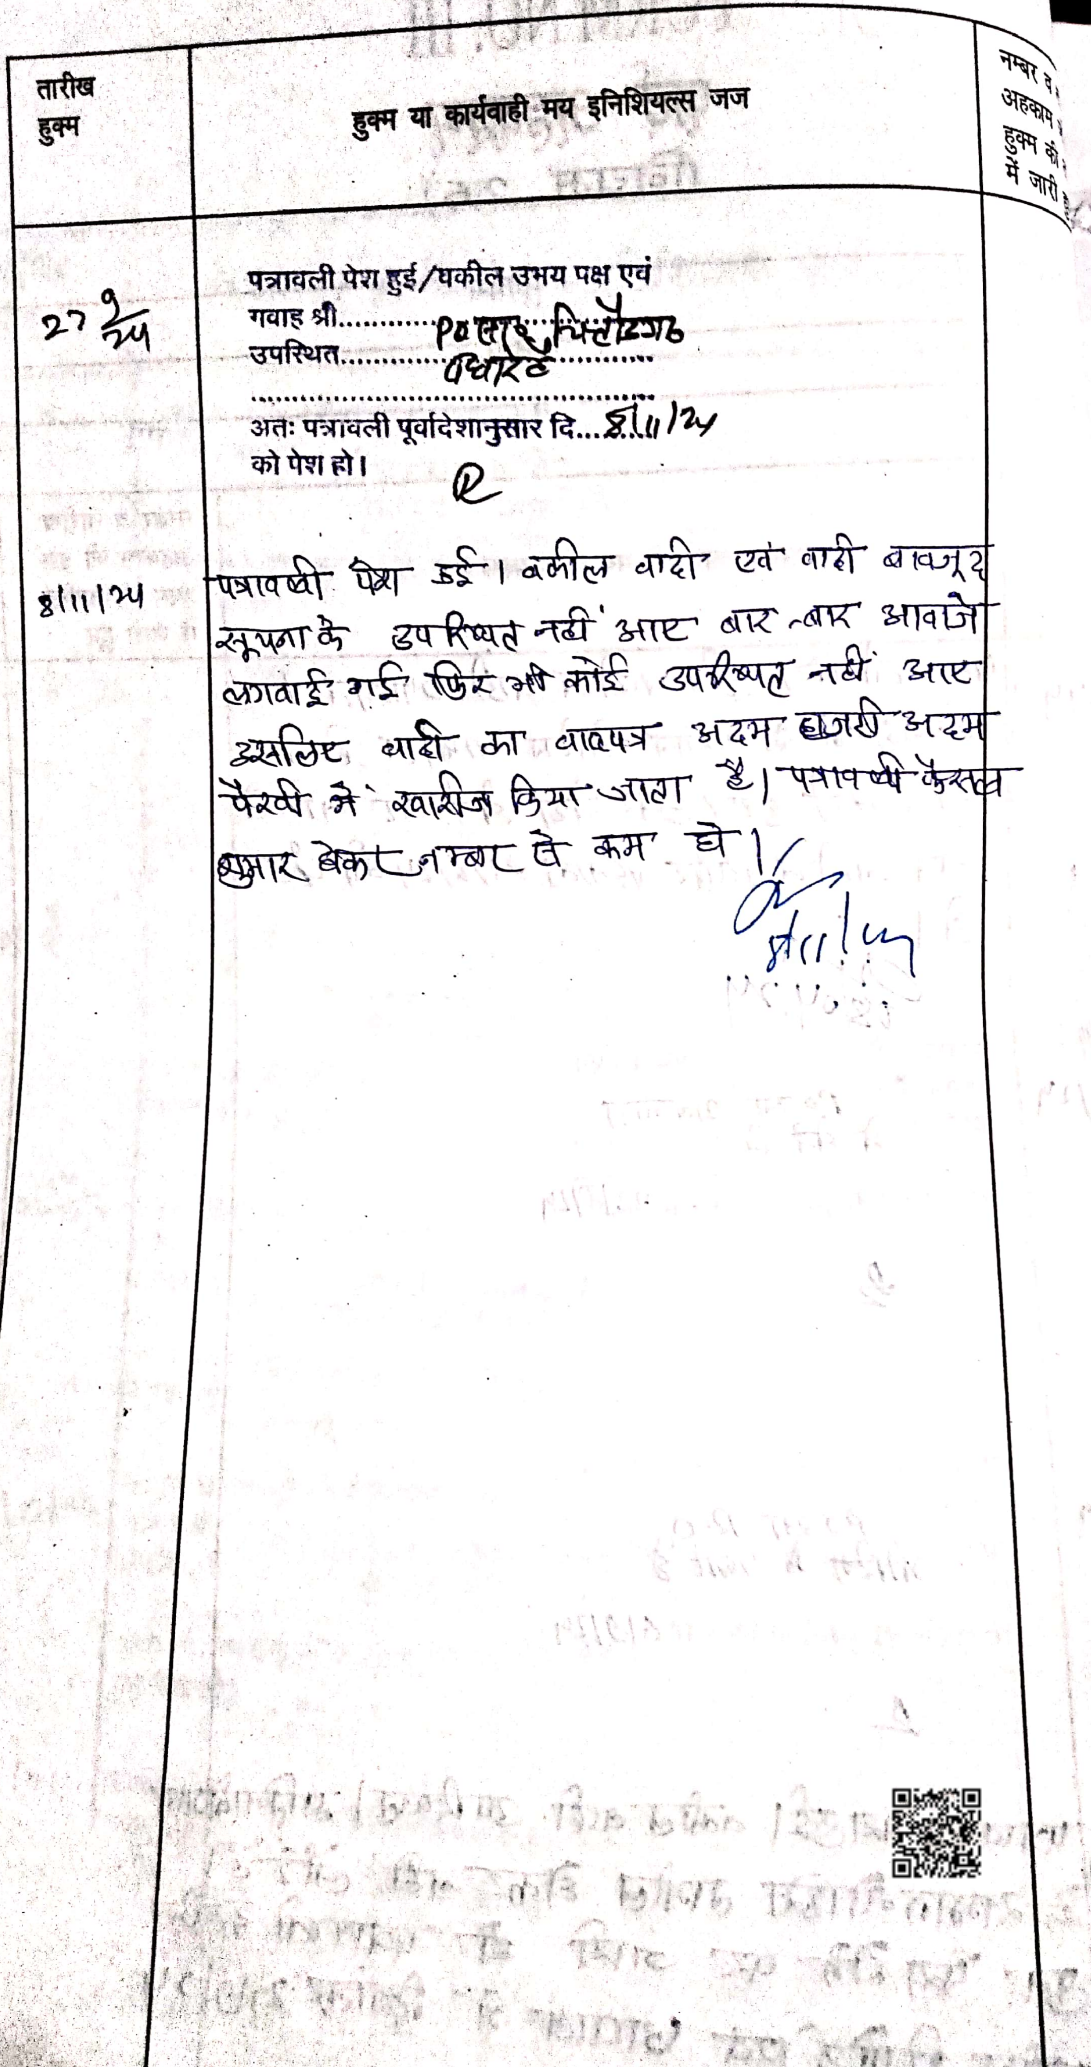 तारीख
हुक्म
हुक्म या कार्यवाही मय इनिशियल्स जज
नम्बर व
अहकाम
हुक्म की
में जारी
पत्रावली पेश हुई/वकील उभय पक्ष एवं
27 9/24
गवाह श्री.............. चित्तौडगढ
उपस्थित............ पधारे है
अतः पत्रावली पूर्वादेशानुसार दि....8/11/24
को पेश हो।
8/11/24
पत्रावली पेश हुई। वकील वादी एवं वादी बावजूद
सूचना के उपस्थित नहीं आए बार-बार आवाजे
लगवाई गई फिर भी कोई उपस्थित नहीं आए
इसलिए वादी का वादपत्र अदम हाजरी अदम
पैरवी में खारीज किया जाता है। पत्रावली फैसल
शुमार होकर नम्बर से कम हो।
8/11/24